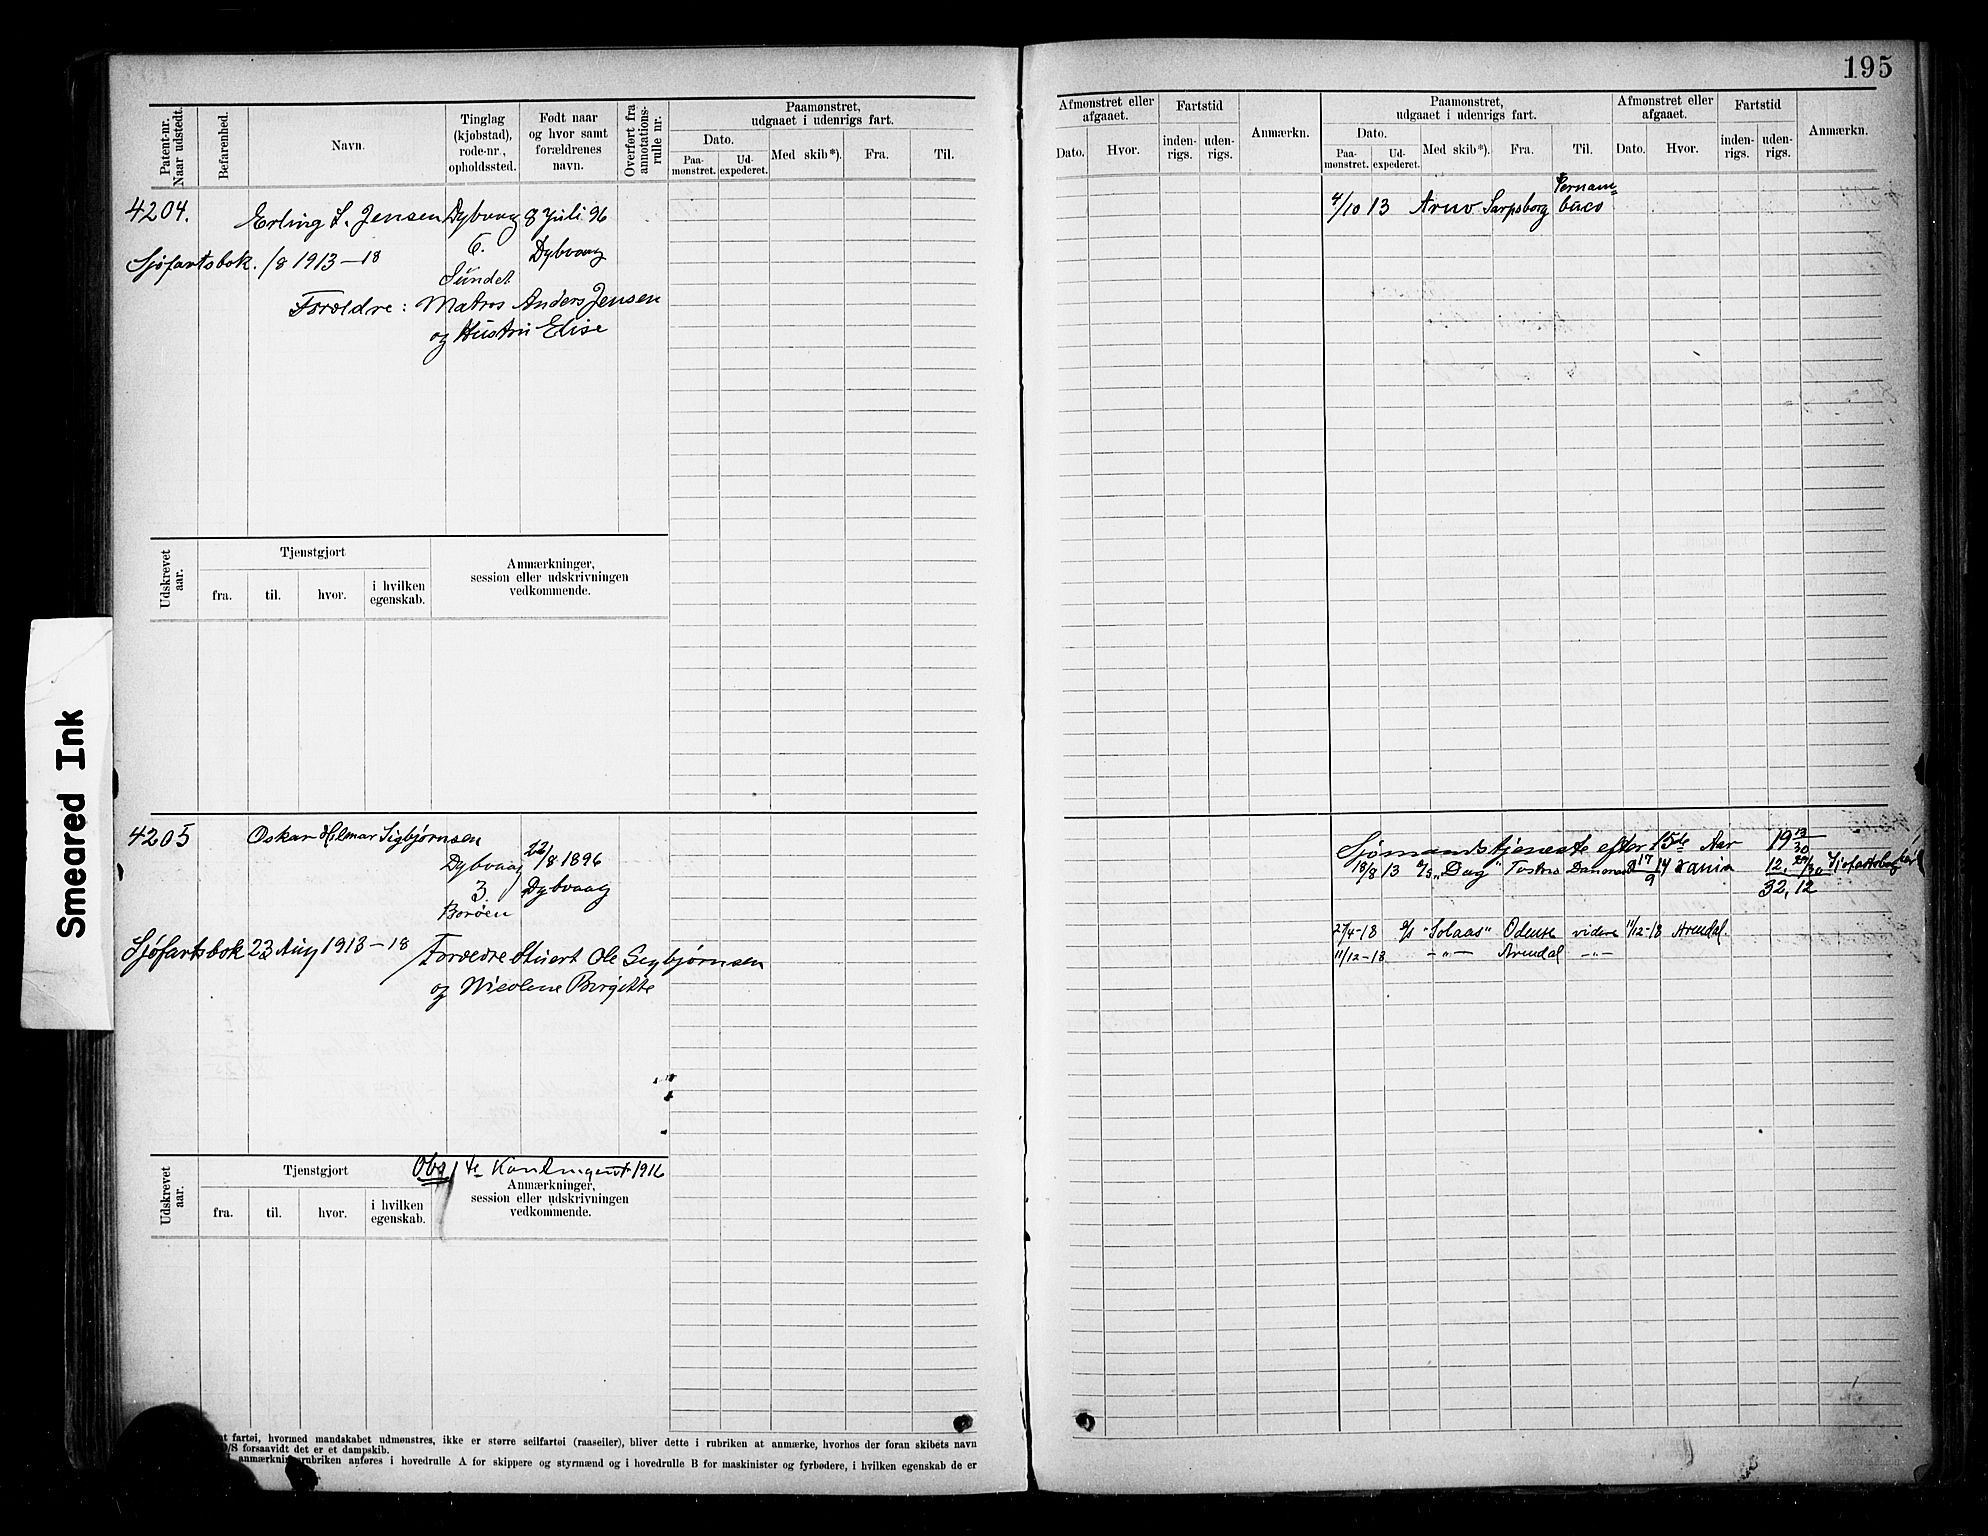 195
Patent-nr.
Naar udstedt.
Befarenhed.
Navn.
Tinglag
(kjøbstad),
rode-nr.,
opholdssted.
Født naar
og hvor samt
forældrenes
navn.
Overført fra
annotations-
rulle nr.
Paamønstret,
udgaaet i udenrigs fart.
Dato.
Paa-
mønstret.
Ud-
expederet.
Med skib*).
Fra.
Til.
Afmønstret eller
afgaaet.
Dato.
Hvor.
Fartstid
inden-
rigs.
uden-
rigs.
Anmærkn.
Paamønstret,
udgaaet i udenrigs fart.
Dato.
Paa-
mønstret.
Ud-
expederet.
Med skib*).
Fra.
Til.
Afmønstret eller
afgaaet.
Dato.
Hvor.
Fartstid
inden-
rigs.
uden-
rigs.
Anmærkn.
4204.
Erling L. Jensen Dybvaag 8 Juli 96
6. Dybvaag
Sjøfartsbok. /8 1913-18
Sundet
Forældre: Matros Anders Jensen
og Hustru Elise
4/10 13 Arno Sarpsborg Pernam=
buco
Udskrevet
aar.
Tjenstgjort
fra.
til.
hvor.
i hvilken
egenskab.
Anmærkninger,
session eller udskrivningen
vedkommende.
4205 Oskar Hilmar Sigbjørnsen
Dybvaag 22/8 1896
3. Dybvaag
Borøen
Sjøfartsbok 23 Aug 1913-18
Forældre Stuert Ole Sigbjørnsen
og Nicoline Birgitte
Sjømandstjeneste efter 15de Aar 19 13/30
18/8 13 "Dag" 17/9 14
32,12
27/4-18 "Solaas" Odense videre 11/12-18 Arendal.
11/12-18 -"- Arendal -"-
Obs 1te Kontingent 1916
Udskrevet
aar.
Tjenstgjort
fra.
til.
hvor.
i hvilken
egenskab.
Anmærkninger,
session eller udskrivningen
vedkommende.
fartøi, hvormed mandskabet udmønstres, ikke er større seilfartøi (raaseiler), bliver dette i rubriken at anmærke, hvorhos der foran skibets navn
D/S forsaavidt det er et dampskib.
anmærkningsrubriken anføres i hovedrulle A for skippere og styrmænd og i hovedrulle B for maskinister og fyrbødere, i hvilken egenskab de er
Smeared Ink